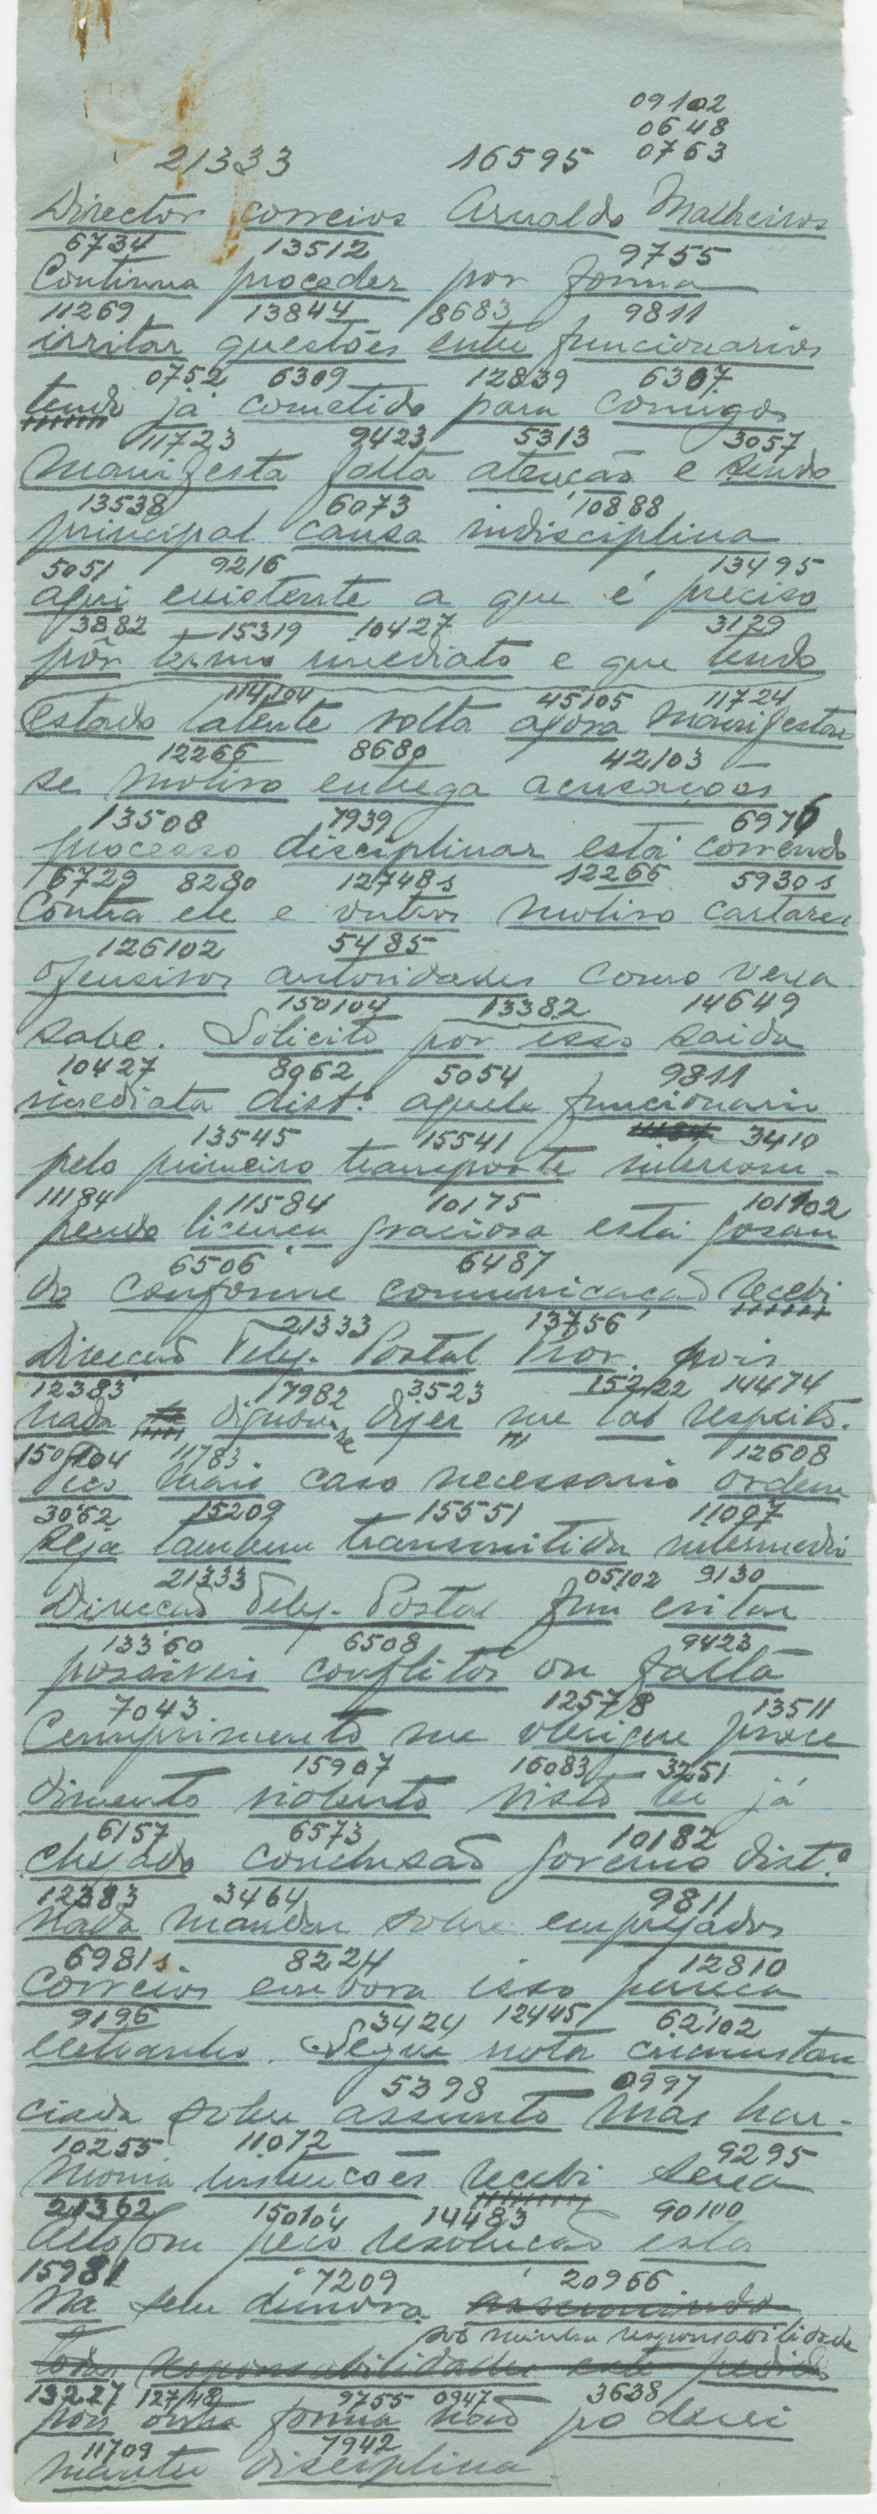 09102
0648
21333 16595 0763
Director correios Arnaldo Malheiros
6734 13512 9755
Continua proceder por forma
11269 13844 8683 9811
irritar questões entre funcionarios
0752 6309 12839 6307
tendo já cometido para comigo
11723 9423 5313 3057
manifesta falta atenção e sendo
13538 6073 10888
principal causa indisciplina
5051 9216 13495
aqui existente a que é preciso
3882 15319 10427 3129
pôr termo imediato e que tendo
114104 45105 11724
estado latente volta agora manifestar
12266 8680 42103
se motivo entrega acusações
13508 7939 6976
processo disciplinar está correndo
6729 8280 12748s 12266 5930s
contra ele e outros motivo cartazes
126102 5485
ofensivos autoridades como vexa
150104 13382 14649
sabe. Solicito por isso saida
10427 8062 5054 9811
imediata dist.º aquele funcionario
13545 15541 11184 3410
pelo primeiro transporte interrom-
11184 11584 10175 101102
pendo licença graciosa está gosan
6506 6487
do conforme comunicação recebi
21333 13756
Direcção Teleg. Postal Prov. pois
12383 7982 3523 15222 14474
nada dignou se dizer me tal respeito.
150104 11783 12608
Peço mais caso necessario ordem
3062 15209 15551 11097
seja tambem transmitida intermedio
21333 05102 9130
Direcção Teleg. Postal fim evitar
13360 6508 9423
possiveis conflitos ou falta
7043 12578 13511
Cumprimento me obrigue proce
15907 16083 3251
dimento violento visto ter já
6157 6573 10182
chegado conclusão governo dist.º
12383 3464 9811
nada mandar sobre empregados
6981s. 8224 12810
correios embora isso pareça
9196 3424 12445 62102
extranho. Segue nota circunstan
5398 0997
ciada sobre assunto mas har-
10255 11072 9295
monia instruções recebi sexa
21362 150104 14483 90100
Altocom peço resolução esta
15981 7209 20966
na sem demora assumindo
sob minha responsabilidade
todas responsabilidades este pedido
13227 12748 9755 0947 3638
pois outra forma não poderei
11709 7942
manter disciplina.